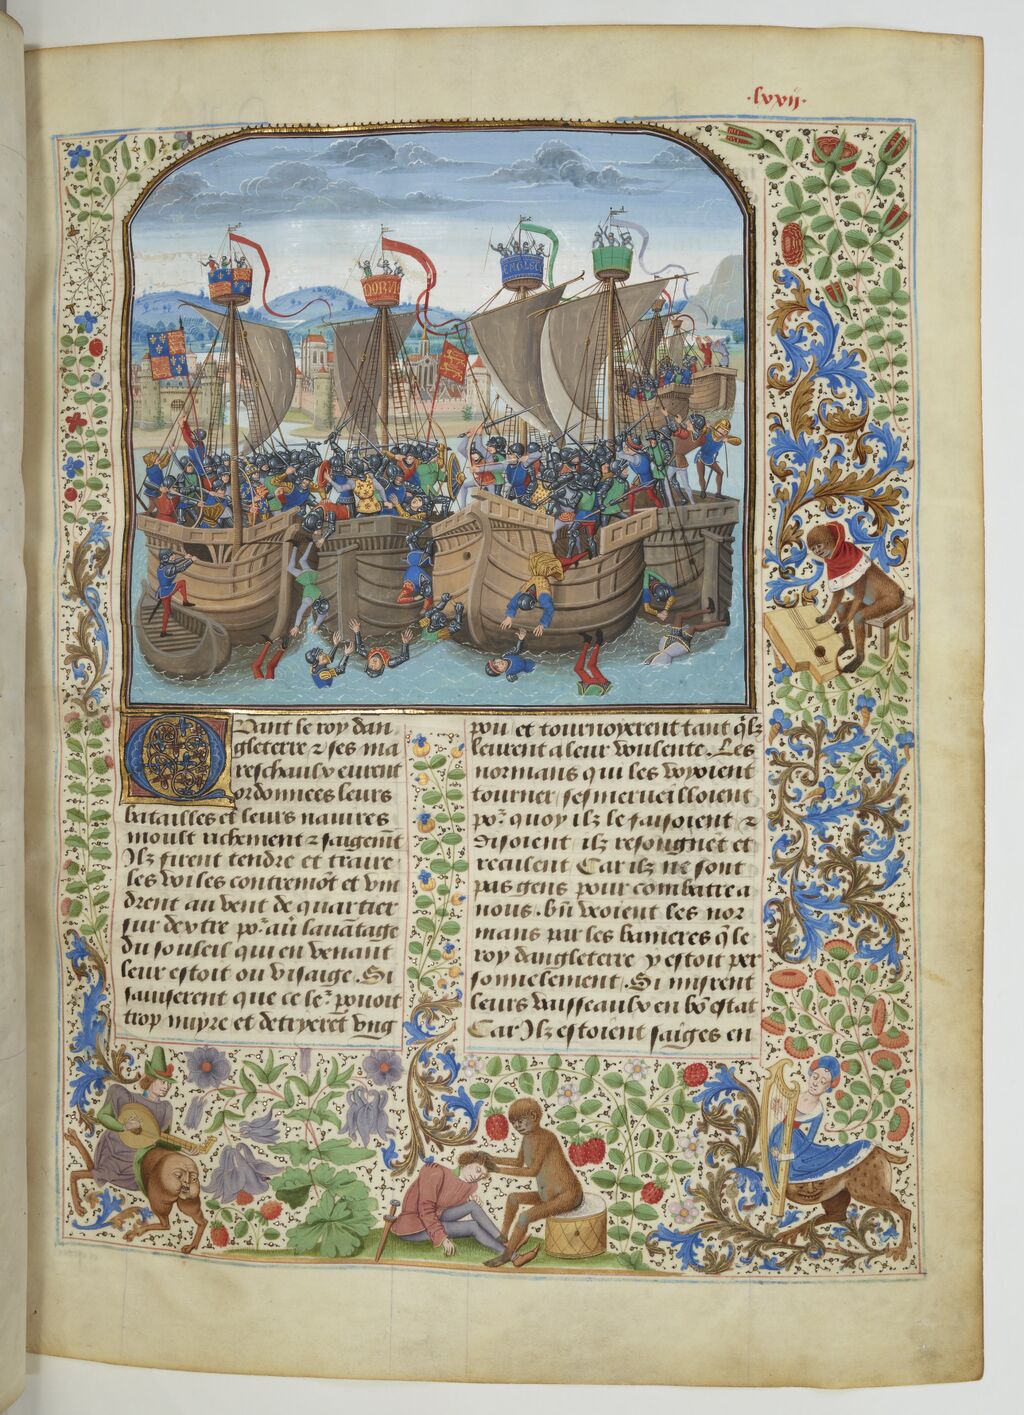 .lxxij.
DORVI
Quant le roy dan
gleterre & ses ma
reschaulx eurent
ordonnees leurs
batailles et leurs navires
moult richement & saigemt
Ilz firent tendre et traire
les voiles contremõt et vin
drent au vent de quartier
sur dextre por avr lauãtaige
du souleil qui en venant
leur estoit ou visaige. Si
saviserent que ce ler povoit
trop nuyre et detryerẽt vng
pou et tournoyerent tant q̃lz
leurent a leur voulente. Les
normans qui les voyoient
tourner sesmerveilloient
por quoy ilz le faisoient &
disoient ilz resongnẽt et
reculent Car ilz ne sont
pas gens pour combatre a
nous. biẽ veoient les nor
mans par les banieres q̃ le
roy dangleterre y estoit per
sonnelement. Si misrent
leurs vaisseaulx en bõ estat
Car Ilz estoient saiges en